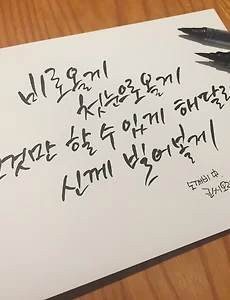 비로올게
첫눈으로올게
그것만 할 수 있게 해달라
신께 빌어볼게
도깨비 中